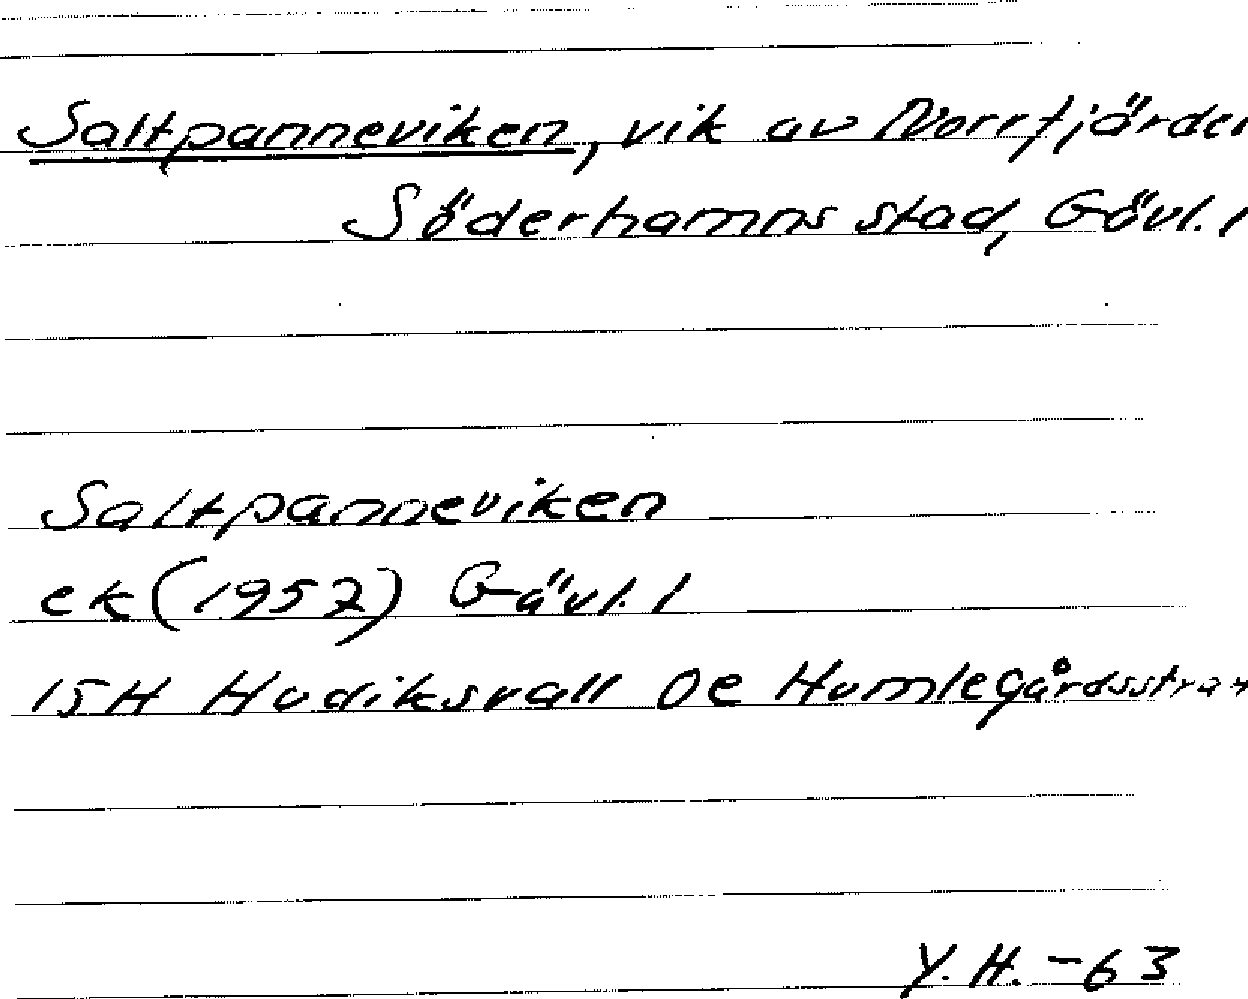 Saltpanneviken, vik av Norrfjärden
Söderhamns stad, Gävl. l
Saltpanneviken
ek (1957) Gävl. l
15H Hudiksvall 0e Humlegårdsstran
Y. H. -63